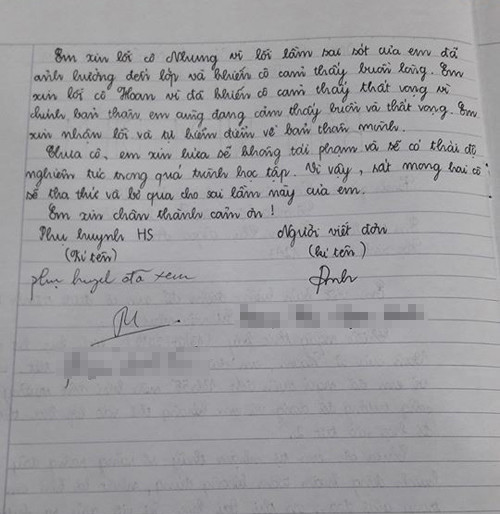 Em xin lỗi cô Nhung vì lỗi lầm sai sót của em đã
ảnh hưởng đến lớp và khiến cô cảm thấy buồn lòng. Em
xin lỗi cô Hoan vì đã khiến cô cảm thấy thất vọng vì
chính bản thân em cũng đang cảm thấy buồn và thất vọng. Em
xin nhận lỗi và tự kiểm điểm về bản thân mình.
Thưa cô, em xin hứa sẽ không tái phạm và sẽ có thái độ
nghiêm túc trong quá trình học tập. Vì vậy, rất mong hai cô
sẽ tha thứ và bỏ qua cho sai lầm này của em.
Em xin chân thành cảm ơn !
Phụ huynh HS Người viết đơn
(Kí tên) (kí tên)
phụ huynh đã xem Anh